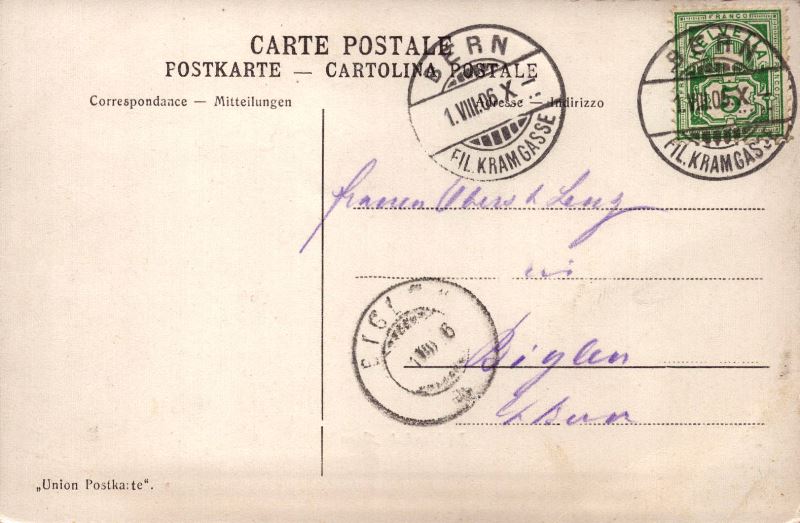 CARTE POSTALE
POSTKARTE — CARTOLINA POSTALE
Correspondance — Mitteilungen
Adresse — Indirizzo
BERN
1.VIII.06.X
FIL.KRAMGASSE
FRANCO
HELVETIA
5
BERN
1.VIII.06.X
FIL.KRAMGASSE
Oberst Lenz
in
BIGL
VIII 06
Biglen
b/Bern
„Union Postkarte“.